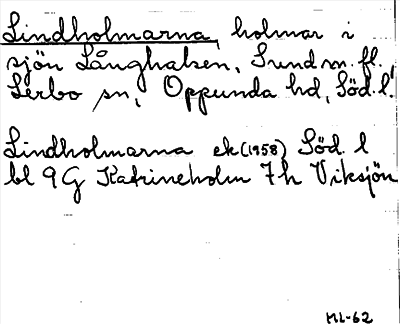 Lindholmarna, holmar i
sjön Långhalsen, Sund sn. fl.
Lerbo sn, Oppunda hd, Söd. l.
Lindholmarna ek (1958) Söd. l
bl 9G Katrineholm 7h Viksjön
ML-62